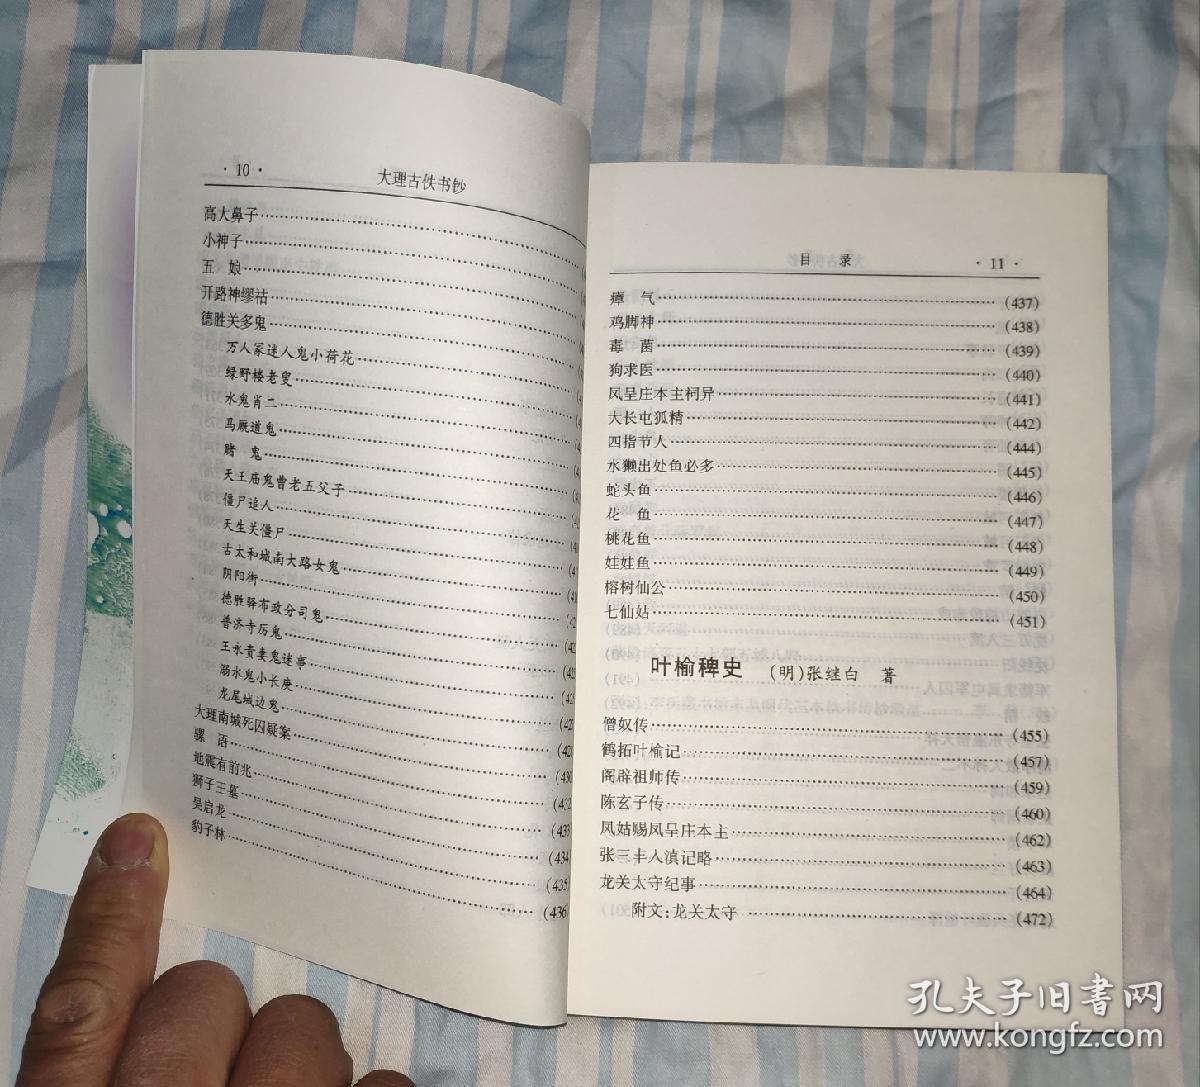 · 10 ·
大理古佚书钞
高大鼻子
小神子
五 娘
开路神缪祜
德胜关多鬼
万人冢迷人鬼小荷花
绿野楼老叟
水鬼肖二
马厩道鬼
赌 鬼
天王庙鬼曹老五父子
僵尸追人
天生关僵尸
古太和城南大路女鬼
阴阳街
德胜驿布政分司鬼
普济寺厉鬼
王永贵妻鬼迷事
溺水鬼小长庚
龙尾城边鬼
大理南城死囚疑案
骡 语
地震有前兆
狮子王墓
吴启龙
豹子林
(430
(432
(433
(434
(435
(436
目 录
· 11 ·
瘴 气 (437)
鸡脚神 (438)
毒 菌 (439)
狗求医 (440)
凤呈庄本主祠异 (441)
大长屯狐精 (442)
四指节人 (444)
水獭出处鱼必多 (445)
蛇头鱼 (446)
花 鱼 (447)
桃花鱼 (448)
娃娃鱼 (449)
榕树仙公 (450)
七仙姑 (451)
叶榆稗史 (明)张继白 著
僧奴传 (455)
鹤拓叶榆记 (457)
阁辟祖师传 (459)
陈玄子传 (460)
凤姑赐凤呈庄本主 (462)
张三丰入滇记略 (463)
龙关太守纪事 (464)
附文:龙关太守 (472)
孔夫子旧书网
www.kongfz.com